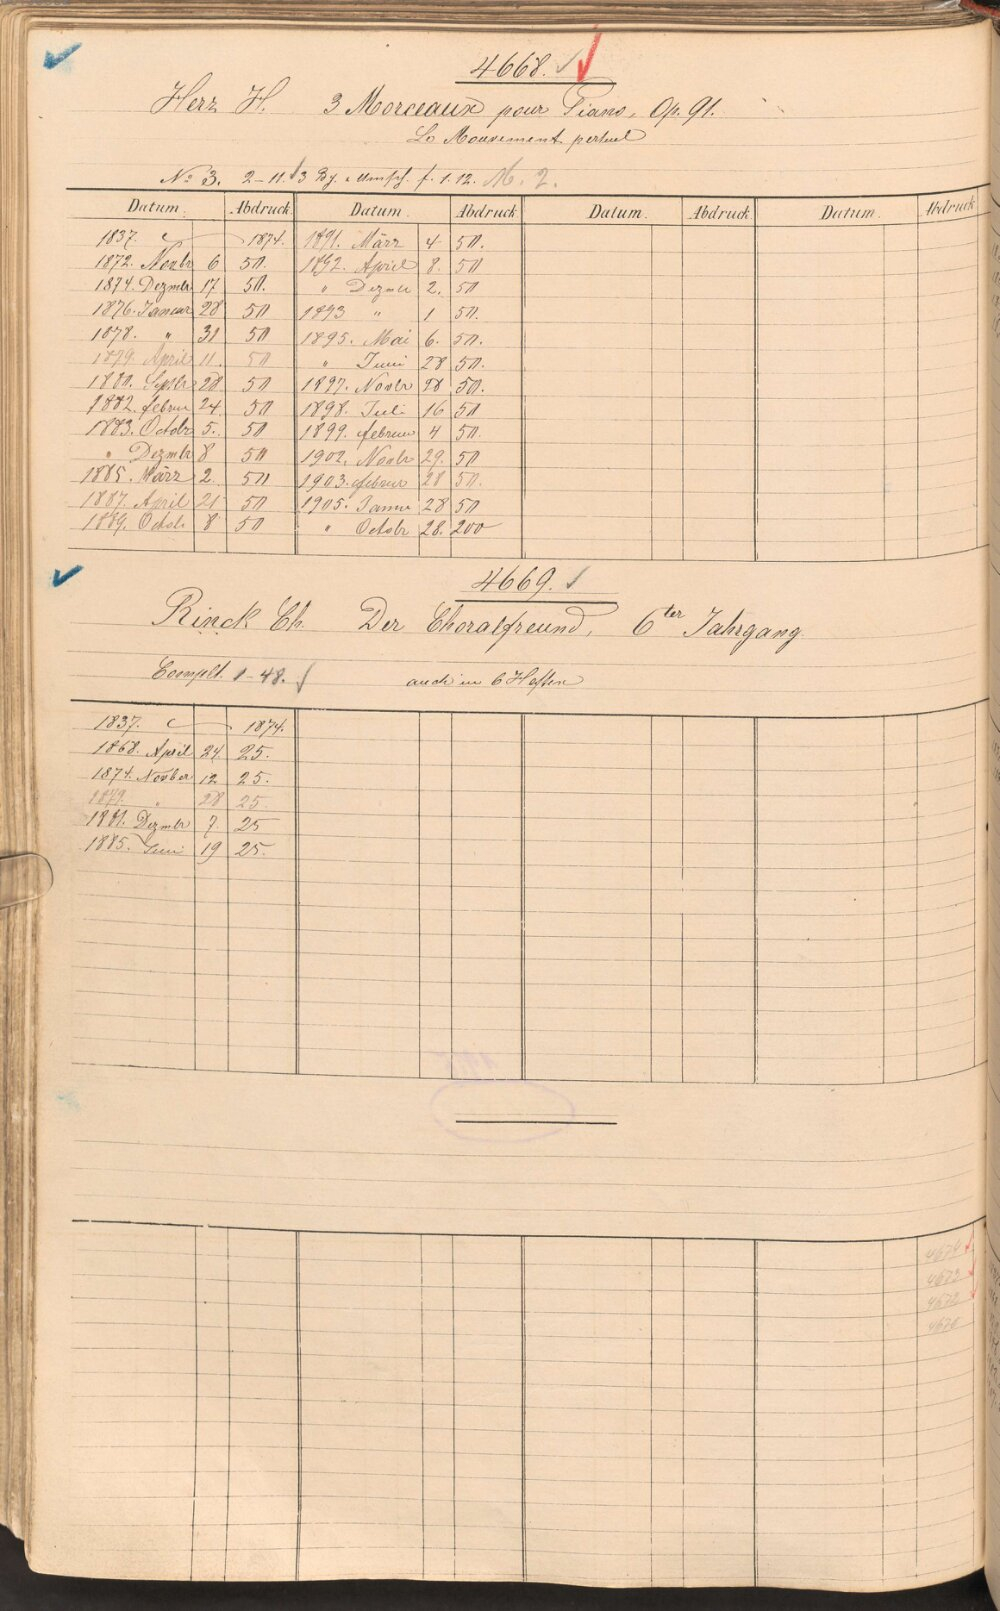 4668.
Herz H. 3 Morceaux pour Piano, Op. 91.
Le Mouvement pertuel
No 3. 2-11. 3 Bg. Umsch. f. 1. 12. M. 2.
Datum. Abdruck. Datum. Abdruck Datum. Abdruck Datum. Abdruck
1837. 1874. 1891. März 4 50.
1872. Novbr 6 50. 1892. April 8. 50
1874. Dezmbr 17 50. " Dezmbr 2. 50
1876. Januar 28 50 1893 " 1 50.
1878. " 31 50 1895. Mai 6. 50.
1879. April 11. 50 " Juni 28 50.
1880. Septbr 28 50 1897. Novbr 28 50.
1882. februar 24. 50 1898. Juli 16 50
1883. Octobr 5. 50 1899. februar 4 50.
" Dezmbr 8 50 1902. Novbr 29. 50
1885. März 2. 50 1903. februar 28 50.
1887. April 21 50 1905. Januar 28 50
1889. Octobr 8 50 " Octobr 28. 200
4669.
Rinck Ch. Der Choralfreund, 6ter Jahrgang.
Complt. 1-48. auch in 6 Heften
1837. 1874.
1868. April 24. 25.
1874. Novber 12 25.
1879. " 28 25.
1881. Dezmbr 7. 25
1885. Juni 19 25.
4674
4673
4672
4670